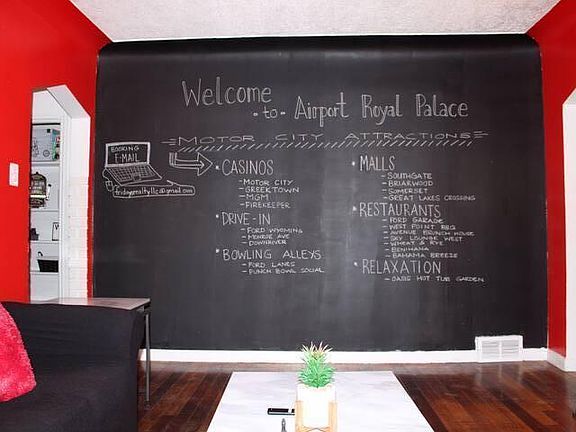 Welcome
-to- Airport Royal Palace
MOTOR CITY ATTRACTIONS
BOOKING
E-MAIL
fridayrealtyllc@gmail.com
* CASINOS
- MOTOR CITY
- GREEKTOWN
- MGM
- FIREKEEPER
* DRIVE-IN
- FORD WYOMING
- MONROE AVE
- DOWNRIVER
* BOWLING ALLEYS
- FORD LANES
- PUNCH BOWL SOCIAL
* MALLS
- SOUTHGATE
- BRIARWOOD
- SOMERSET
- GREAT LAKES CROSSING
* RESTAURANTS
- FORD GARAGE
- WEST POINT BBQ
- AVENUE BRUNCH HOUSE
- SKY LOUNGE WEST
- WHEAT & RYE
- BENIHANA
- BAHAMA BREEZE
* RELAXATION
- OASIS HOT TUB GARDEN